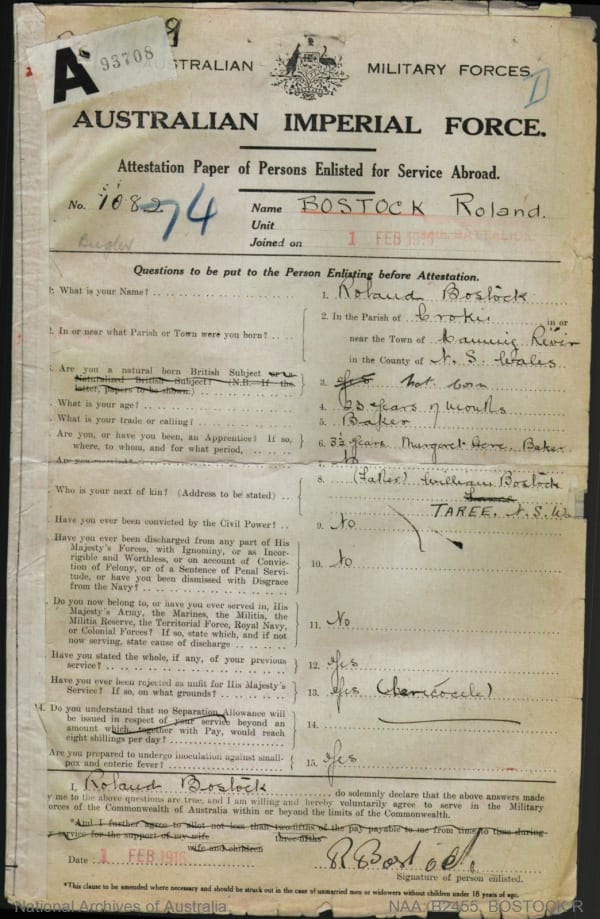 A 93708
AUSTRALIAN MILITARY FORCES.
AUSTRALIAN IMPERIAL FORCE.
Attestation Paper of Persons Enlisted for Service Abroad.
No. 74 Name BOSTOCK Roland.
Unit
Bugler Joined on 1 FEB 1916
Questions to be put to the Person Enlisting before Attestation.
1. What is your Name? 1. Roland Bostock
2. In or near what Parish or Town were you born? 2. In the Parish of Croki in or
near the Town of Manning River
in the County of N. S. Wales
3. Are you a natural born British Subject or a
Naturalized British Subject? (N.B. If the
latter, papers to be shown.) 3. Yes Nat born
What is your age? 4. 23 years 7 months
What is your trade or calling? 5. Baker
Are you, or have you been, an Apprentice? If so,
where, to whom, and for what period, 6. 3½ years Margaret Gore. Baker
Are you married? 7.
Who is your next of kin? (Address to be stated) 8. (Father) William Bostock
TAREE. N. S. W.
Have you ever been convicted by the Civil Power? 9. No
Have you ever been discharged from any part of His
Majesty's Forces, with Ignominy, or as Incor-
rigible and Worthless, or on account of Convic-
tion of Felony, or of a Sentence of Penal Servi-
tude, or have you been dismissed with Disgrace
from the Navy? 10. No
Do you now belong to, or have you ever served in, His
Majesty's Army, the Marines, the Militia, the
Militia Reserve, the Territorial Force, Royal Navy,
or Colonial Forces? If so, state which, and if not
now serving, state cause of discharge 11. No
Have you stated the whole, if any, of your previous
service? 12. Yes
Have you ever been rejected as unfit for His Majesty's
Service? If so, on what grounds? 13. Yes (Varicocele)
14. Do you understand that no Separation Allowance will
be issued in respect of your service beyond an
amount which together with Pay, would reach
eight shillings per day? 14.
Are you prepared to undergo inoculation against small-
pox and enteric fever? 15. Yes
I, Roland Bostock do solemnly declare that the above answers made
by me to the above questions are true, and I am willing and hereby voluntarily agree to serve in the Military
Forces of the Commonwealth of Australia within or beyond the limits of the Commonwealth.
*And I further agree to allot not less than two-fifths of the pay payable to me from time to time during
my service for the support of my wife three-fifths
wife and children
Date: 1 FEB 1916 R Bostock.
Signature of person enlisted.
*This clause to be amended where necessary and should be struck out in the case of unmarried men or widowers without children under 18 years of age.
National Archives of Australia NAA: B2455, BOSTOCK R